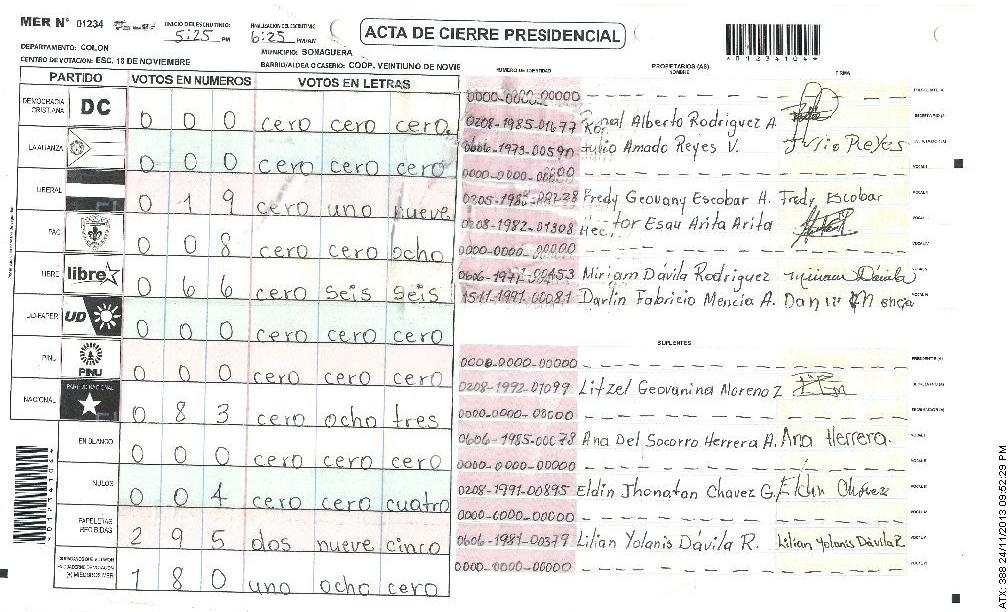 MER N° 01234
INICIO DEL ESCRUTINIO: 5:25 PM
FINALIZACION DEL ESCRUTINIO 6:25 PM
ACTA DE CIERRE PRESIDENCIAL
*01234104*
DEPARTAMENTO: COLON
MUNICIPIO: SONAGUERA
CENTRO DE VOTACION: ESC. 18 DE NOVIEMBRE
BARRIO/ALDEA O CASERIO: COOP. VEINTIUNO DE NOVIE
PARTIDO VOTOS EN NUMEROS VOTOS EN LETRAS
DEMOCRACIA CRISTIANA DC 0 0 0 cero cero cero
LA ALIANZA 0 0 0 cero cero cero
LIBERAL 0 1 9 cero uno nueve
PAC 0 0 8 cero cero ocho
LIBRE libre 0 6 6 cero seis seis
UD-FAPER UD 0 0 0 cero cero cero
PINU PINU 0 0 0 cero cero cero
NACIONAL PARTIDO NACIONAL 0 8 3 cero ocho tres
EN BLANCO 0 0 0 cero cero cero
NULOS 0 0 4 cero cero cuatro
PAPELETAS RECIBIDAS 2 9 5 dos nueve cinco
1 8 0 uno ocho cero
NUMERO DE IDENTIDAD PROPIETARIOS (AS) NOMBRE FIRMA
0000-0000-00000
0208-1985-01677 Ronal Alberto Rodriguez A.
0606-1973-00590 Julio Amado Reyes V. Julio Reyes
0000-0000-00000
Fredy Geovany Escobar H. Fredy Escobar
0208-1982-01308 Hector Esau Arita Arita
0000-0000-00000
Miriam Dávila Rodriguez Miriam Dávila
1511-1991-00081 Darlin Fabricio Mencia A.
SUPLENTES
0000-0000-00000
0208-1992-01099 Litzel Geovanina Moreno Z
0000-0000-00000
0606-1985-00078 Ana Del Socorro Herrera A. Ana Herrera.
0000-0000-00000
0208-1991-00895 Eldin Jhonatan Chavez G. Eldin Chávez
0000-0000-00000
0606-1981-00379 Lilian Yolanis Dávila R. Lilian Yolanis Dávila R
0000-0000-00000
ATX: 388 24/11/2013 09:52:29 PM